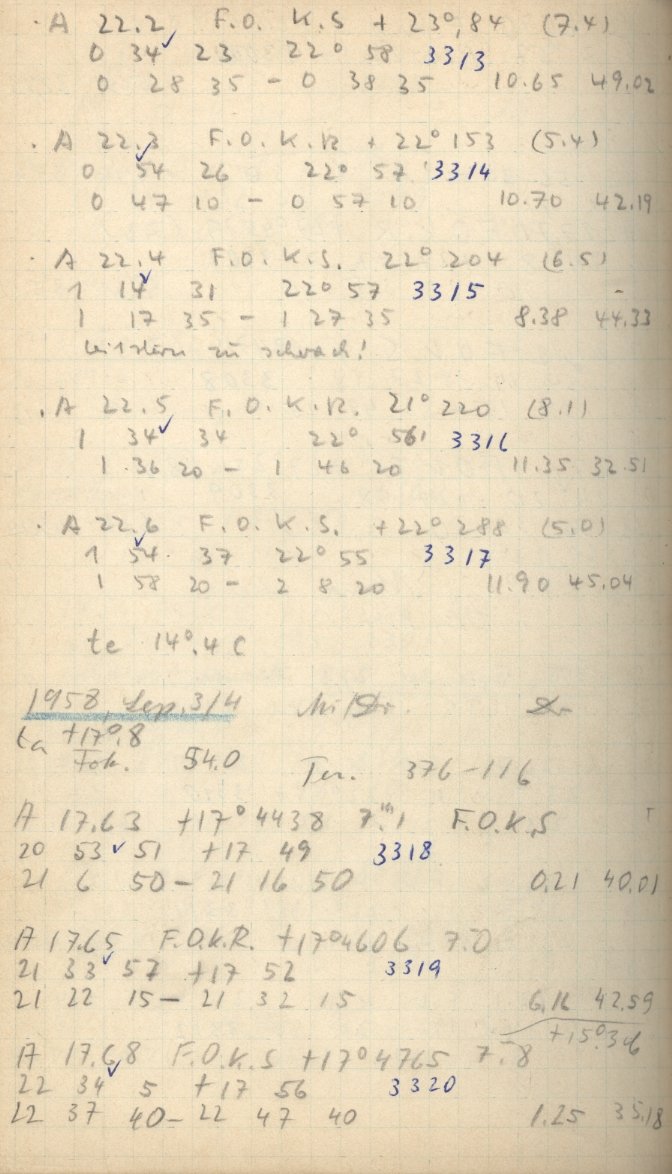 · A 22.2 F.O. K.S + 23°,84 (7.4)
0 34✓ 23 22° 58 3313
0 28 35 - 0 38 35 10.65 49.02
· A 22.3 F.O.K.R + 22° 153 (5.4)
0 54 26 22° 57 3314
0 47 10 - 0 57 10 10.70 42.19
· A 22.4 F.O.K.S. 22° 204 (6.5)
1 14✓ 31 22° 57 3315
1 17 35 - 1 27 35 8.38 44.33
Leitstern zu schwach!
. A 22.5 F.O.K.R. 21° 220 (8.1)
1 34✓ 34 22° 56 3316
1 36 20 - 1 46 20 11.35 32.51
· A 22.6 F.O.K.S. +22° 288 (5.0)
1 54 37 22° 55 3317
1 58 20 - 2 8 20 11.90 45.04
te 14°.4 C
1958, Sep. 3/4
ta +17°.8
Fok. 54.0 Ter. 376-116
A 17.63 +17° 4438 7.m1 F.O.K.S
20 53✓ 51 +17 49 3318
21 6 50 - 21 16 50 0.21 40.01
A 17.65 F.O.K.R. +17° 4606 7.0
21 33✓ 57 +17 52 3319
21 22 15 - 21 32 15 6.16 42.59
+15°.36
A 17.68 F.O.K.S +17° 4765 7.8
22 34✓ 5 +17 56 3320
22 37 40 - 22 47 40 1.25 35.18